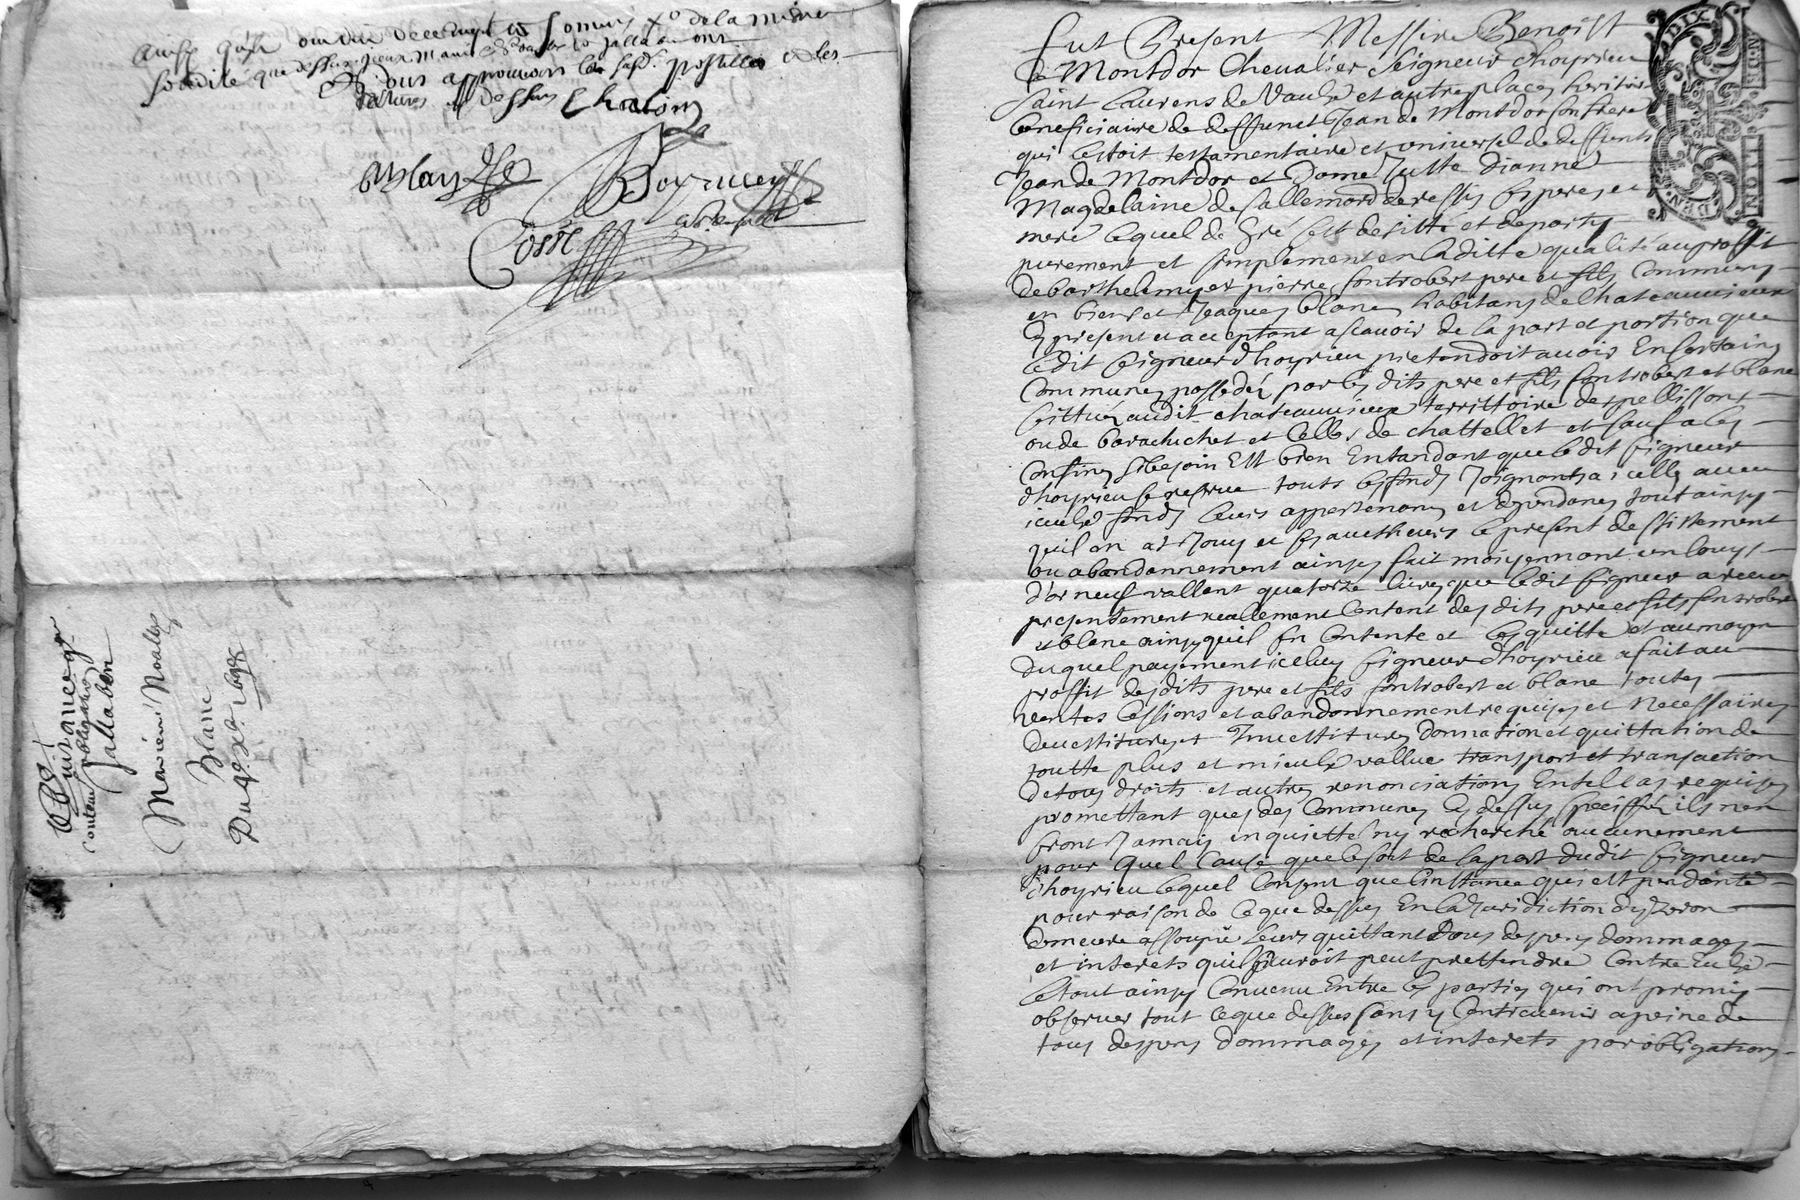 et nous approuvons les susd. postilles et les
ratures cy dessus Chalvin
Cosse
Quittance
Jallabert
Maximi Noally
Blanc
Du 9e xbre 1698
Fut Present Messire Benoist
de Montdor Chevalier Seigneur dhoyrieu
Saint Laurens de Vaulx et autre places heritier
beneficiaire de deffunct Jean de Montdor son frere
qui lestoit testamentaire et universel de deffunts
Jean de Montdor et Dame Jutte Dianne
Magdelaine de Sallemard de ressis ses pere et
mere lequel de gré sest desisté et departy
purement et simplement en laditte qualité au proffit
de barthelemy et pierre fontrobert pere et fils communs
en biens et Jacques blanc habitans de Chateauvieux
cy present et acceptant ascavoir de la part et portion que
ledit Seigneur dhoyrieu pretendoit avoir En certains
Communes possedés par les dits pere et fils fontrobert et blanc
scittués audit chateauvieux territtoire des pellissons
ou de barachichet et Celles de chattellet et sauf a les
Confiner si besoin Est bien Entandant que ledit seigneur
dhoyrieu se reserve touts les fonds Joignants a icelle avec
iceulx fonds leurs appartenances et dependances tout ainsy
quil en at Jouy et ses autheurs le present dessistement
ou abandonnement ainsy fait moyennant un louys
d'or neuf vallent quatorze livres que ledit seigneur a receu
presentement reallement Contant des dits pere et fils fontrobert
et blanc ainsy quil sen Contente et les quitte et au moyen
duquel payement iceluy seigneur dhoyrieu a fait au
proffit des dits pere et fils fontrobert et blanc toutes
ventes Cessions et abandonnement requises et Necessaires
devestitures et Investitures donnation et quittation de
toutte plus et mieulx vallue transport et transaction
de tous droits et autres renonciations En tel cas requises
promettant que des Communes Cy dessus speciffiés ils nen
seront Jamais inquietté ny recherché aucunement
pour quel Cause que ce soit de la part dudit seigneur
dhoyrieu lequel Consent que linstance qui est pendante
pour raison de ce que dessus En la Juridiction dyzeron
demeure assoupie leurs quittant tous despens dommages
et interets quil pouroit peut prettendre Contre Eulx
le tout ainsy Convenu Entre les parties qui ont promis
observer tout ce que dessus sans y Contrevenir a peine de
tous despens dommages et interets par obligations